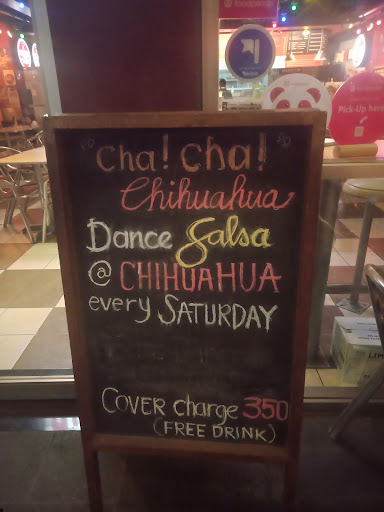 foodpanda
Pick-Up here
"Cha! Cha!"
Chihuahua
Dance Salsa
@ CHIHUAHUA
every SATURDAY
COVER charge 350
(FREE DRINK)